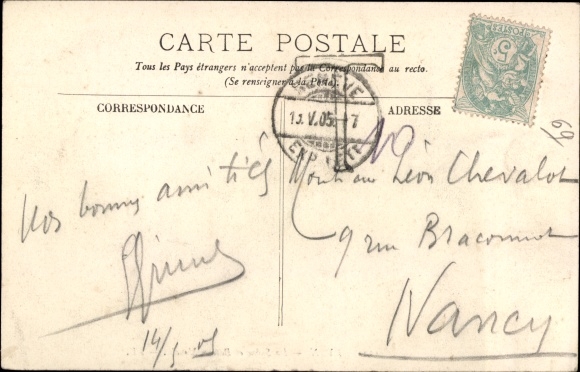 CARTE POSTALE
Tous les Pays étrangers n'acceptent pas la Correspondance au recto.
(Se renseigner à la Poste).
CORRESPONDANCE
ADRESSE
POSTES
5
GENÈVE
13.V.05. 7
T
10
69
Nos bonnes amitiés
14/5 05
Monsieur Léon Chevalot
9 rue Braconnot
Nancy